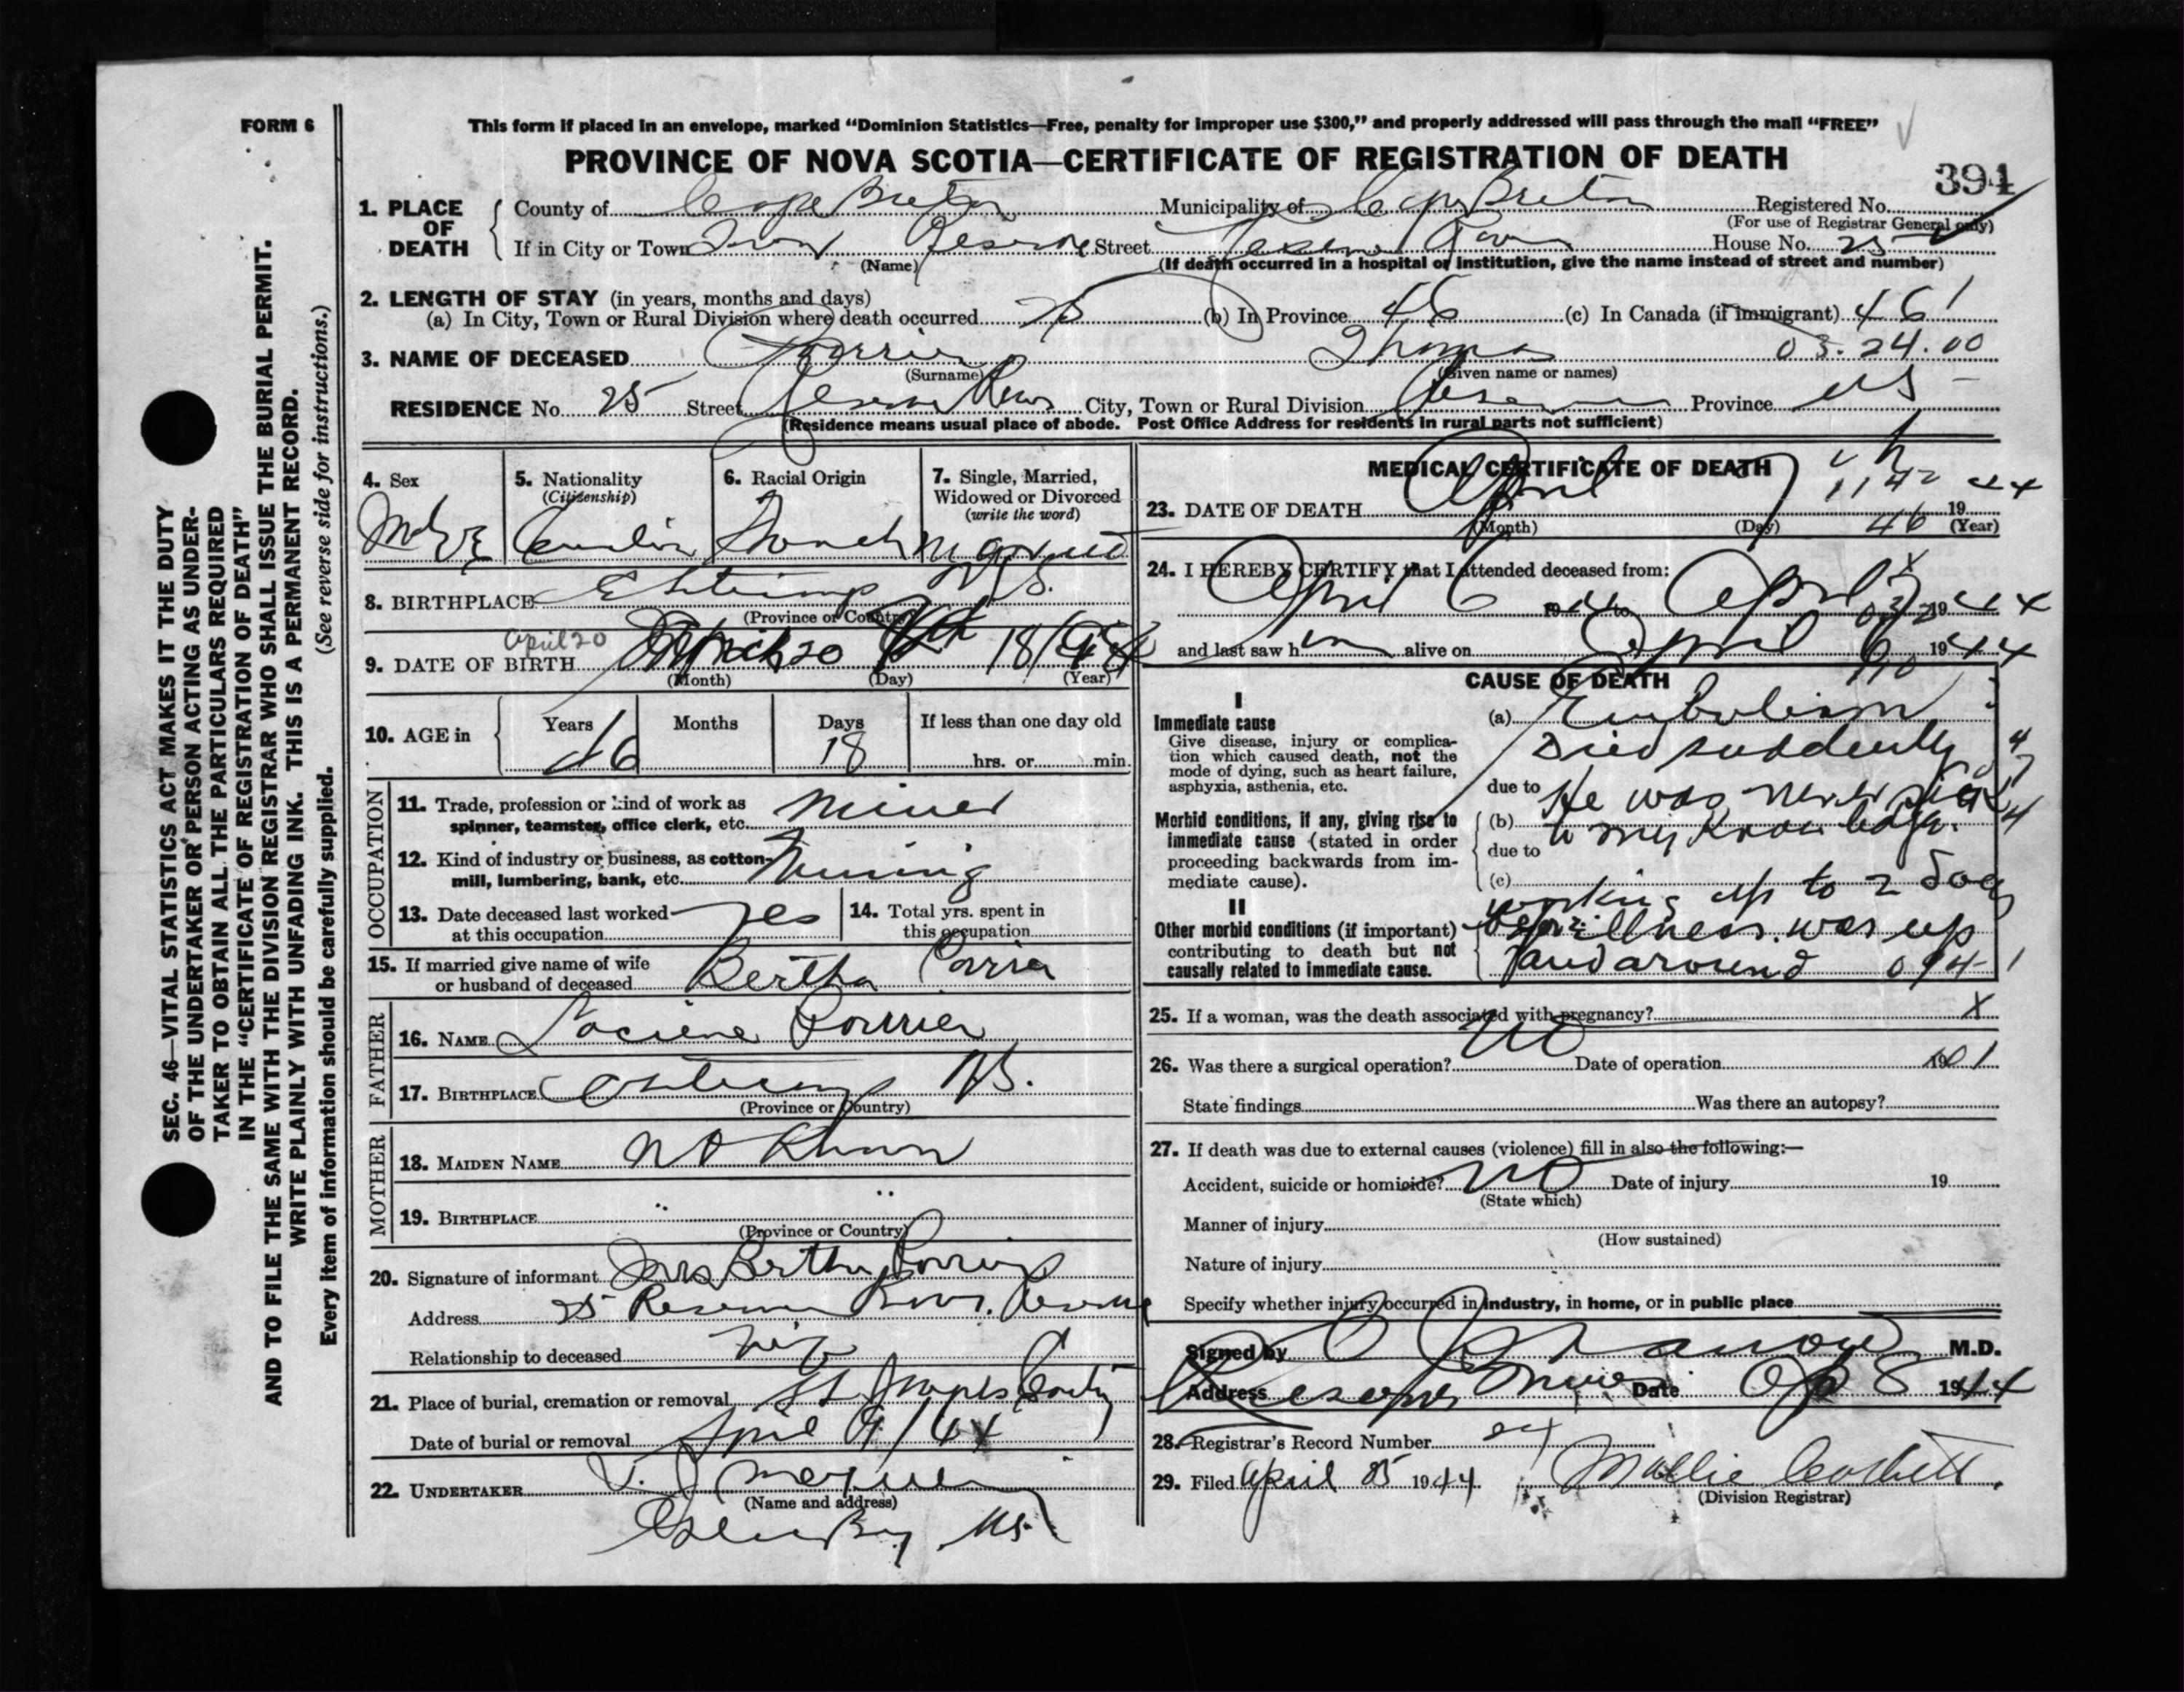 FORM 6
This form if placed in an envelope, marked “Dominion Statistics—Free, penalty for improper use $300,” and properly addressed will pass through the mail “FREE”
PROVINCE OF NOVA SCOTIA—CERTIFICATE OF REGISTRATION OF DEATH
394
1. PLACE OF DEATH
County of Cape Breton Municipality of Cape Breton Registered No.
(For use of Registrar General only)
If in City or Town Reserve Street House No. 25
(Name)
(If death occurred in a hospital or institution, give the name instead of street and number)
2. LENGTH OF STAY (in years, months and days)
(a) In City, Town or Rural Division where death occurred 25 (b) In Province 46 (c) In Canada (if immigrant) 46 1
3. NAME OF DECEASED Thomas 03.24.00
(Surname) (Given name or names)
RESIDENCE No. 25 Street Reserve Rows City, Town or Rural Division Reserve Province NS
(Residence means usual place of abode. Post Office Address for residents in rural parts not sufficient)
4. Sex
5. Nationality
(Citizenship)
6. Racial Origin
7. Single, Married, Widowed or Divorced
(write the word)
Male Canadian French Married
8. BIRTHPLACE N.S.
(Province or Country)
April 20
9. DATE OF BIRTH April 20 18
(Month) (Day) (Year)
10. AGE in
Years Months Days If less than one day old
46 18 hrs. or min.
OCCUPATION
11. Trade, profession or kind of work as spinner, teamster, office clerk, etc. Miner
12. Kind of industry or business, as cotton-mill, lumbering, bank, etc. Mining
13. Date deceased last worked at this occupation yes
14. Total yrs. spent in this occupation
15. If married give name of wife or husband of deceased Bertha
FATHER
16. NAME
17. BIRTHPLACE N.S.
(Province or Country)
MOTHER
18. MAIDEN NAME
19. BIRTHPLACE " "
(Province or Country)
20. Signature of informant Mrs Bertha
Address 25 Reserve Rows. Reserve
Relationship to deceased Wife
21. Place of burial, cremation or removal St
Date of burial or removal April 9/44
22. UNDERTAKER
(Name and address)
Glace Bay, NS.
MEDICAL CERTIFICATE OF DEATH
23. DATE OF DEATH April 7 19 44
46
(Month) (Day) (Year)
24. I HEREBY CERTIFY that I attended deceased from:
April 6 19 44 to April 7 19 44
and last saw him alive on April 6 19 44
CAUSE OF DEATH
I
Immediate cause
Give disease, injury or complication which caused death, not the mode of dying, such as heart failure, asphyxia, asthenia, etc.
(a) Embolism
Died suddenly
due to He was never sick
Morbid conditions, if any, giving rise to immediate cause (stated in order proceeding backwards from immediate cause).
(b) to my knowledge.
due to
(c)
working up to 2 days
II
Other morbid conditions (if important) contributing to death but not causally related to immediate cause.
before illness. was up
and around 094 1
25. If a woman, was the death associated with pregnancy? X
26. Was there a surgical operation? NO Date of operation 19
State findings Was there an autopsy?
27. If death was due to external causes (violence) fill in also the following:—
Accident, suicide or homicide? NO Date of injury 19
(State which)
Manner of injury
(How sustained)
Nature of injury
Specify whether injury occurred in industry, in home, or in public place
Signed by M.D.
Address Reserve Mines Date Ap 8 1944
28. Registrar's Record Number
29. Filed April 1944 Mollie Corbett
(Division Registrar)
SEC. 46—VITAL STATISTICS ACT MAKES IT THE DUTY
OF THE UNDERTAKER OR PERSON ACTING AS UNDER-
TAKER TO OBTAIN ALL THE PARTICULARS REQUIRED
IN THE “CERTIFICATE OF REGISTRATION OF DEATH”
AND TO FILE THE SAME WITH THE DIVISION REGISTRAR WHO SHALL ISSUE THE BURIAL PERMIT.
WRITE PLAINLY WITH UNFADING INK. THIS IS A PERMANENT RECORD.
Every item of information should be carefully supplied. (See reverse side for instructions.)